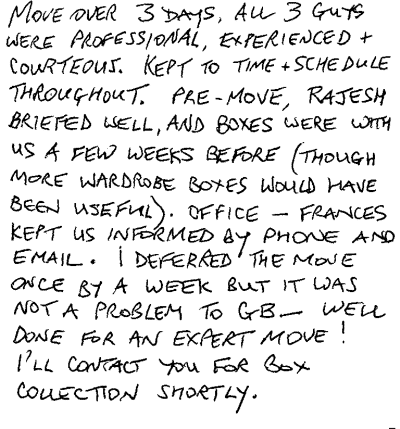 MOVE OVER 3 DAYS, ALL 3 GUYS
WERE PROFESSIONAL, EXPERIENCED +
COURTEOUS. KEPT TO TIME + SCHEDULE
THROUGHOUT. PRE-MOVE, RAJESH
BRIEFED WELL, AND BOXES WERE WITH
US A FEW WEEKS BEFORE (THOUGH
MORE WARDROBE BOXES WOULD HAVE
BEEN USEFUL). OFFICE – FRANCES
KEPT US INFORMED BY PHONE AND
EMAIL. I DEFERRED THE MOVE
ONCE BY A WEEK BUT IT WAS
NOT A PROBLEM TO GB – WELL
DONE FOR AN EXPERT MOVE!
I'LL CONTACT YOU FOR BOX
COLLECTION SHORTLY.